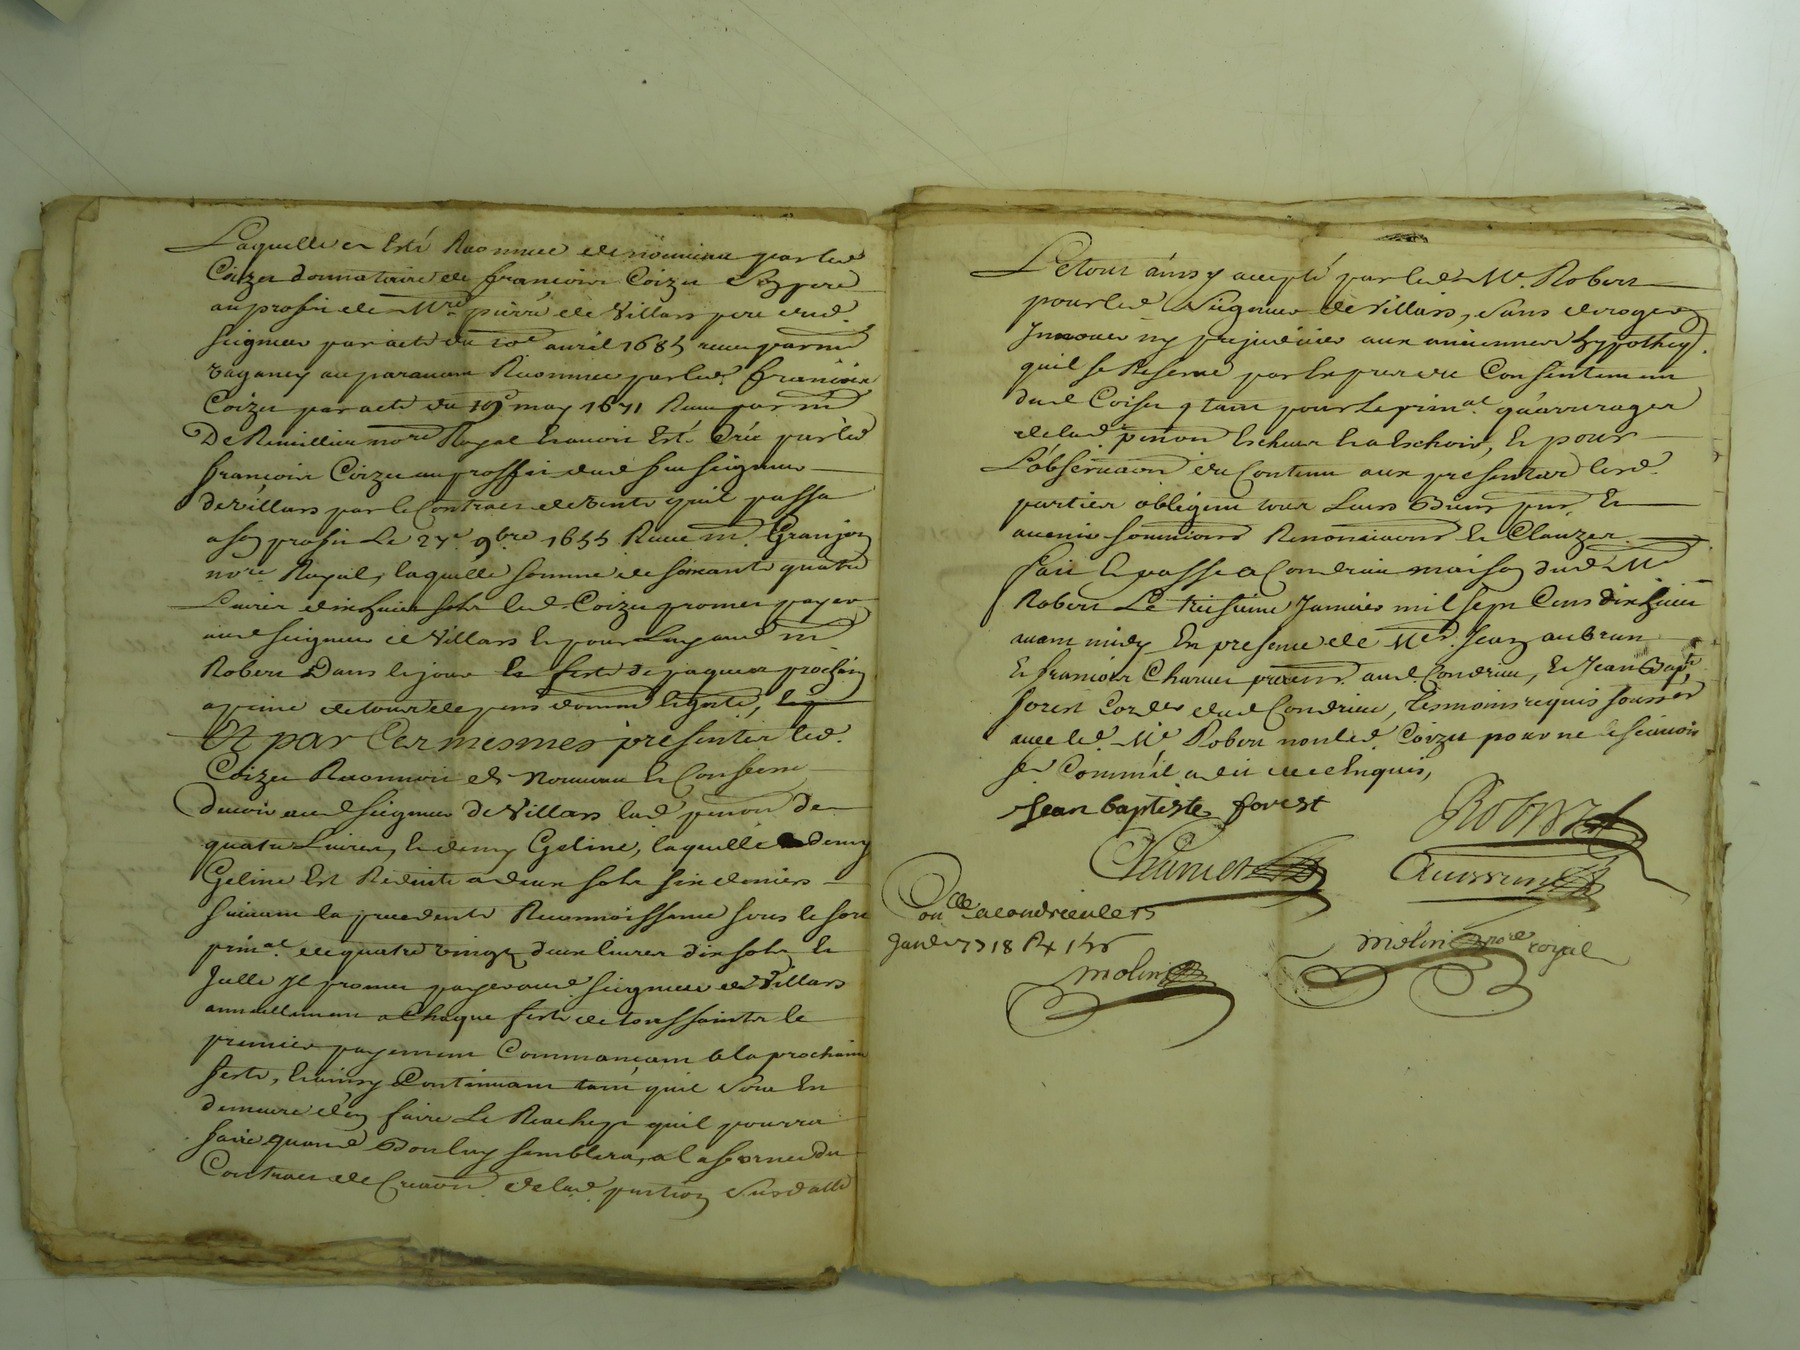 Laquelle a Esté Reconnue de nouveau par led
Coizu donnataire de françois Coizu Son pere
au profit de Mre pierre de Villars pere dud.
seigneur par acte du avril 1685 receu par me
auparavant Reconnue par led. françois
Coizu par acte du 19e may 1671 Receu par me
De Remillieu nore Royal Et avoir Esté Créé par led
françois Coizu au proffit dud feu seigneur
de Villars par le Contract de vente quil passa
a son profit Le 27e 9bre 1655 Receu me Granjon
nore Royal, laquelle somme de soixante quatre
Livres dixhuit sols led Coizu promet payer
aud seigneur de Villars Et pour Luy aud me
Robert Dans le jour Et feste de paques prochain
a peine de tous depens domm. Et
Et par Ces mesmes presentes led.
Coizu Reconnoit de Nouveau Et Confesse
devoir aud seigneur De Villars lad pension de
quatre Livres, Et demy Geline, laquelle demy
Geline Est Reduite a deux sols six deniers
suivant la precedente Reconnoissance sous le sort
prinal. de quatre vingt deux livres dix sols Et
Jcelle Jl promet payer aud seigneur de Villars
annuellement a Chaque feste de toussaints le
premier payement Commançant a la prochaine
feste, Et ainsy Continuant tant quil sera En
demeure d'en faire Le Rachept quil pourra
faire quand Bon luy semblera, a la forme du
Contract de Creaon. de lad. pention Susd atté
Le tout ainsy accepté par led Me. Robert
pour led Seigneur de Villars, sans deroger
Jnnover ny prejudicier aux anciennes hypotheq.
quil se Reserve par Exprez du Consentement
dud Coisu tant pour le prinal. qu'arrerages
de lad pention Escheus Et a Eschoir, Et pour
L'observaon du Contenu aux presentes lesd.
parties obligent tous Leurs Biens pnts Et
avenir soumissions Renonciaons Et Clauzes.
fait Et passé a Condrieu maison dud Me
Robert Le treisieme Janvier mil sept Cens dixhuit
avant midy En presence de Me Jean aubrun
Et françois Charvet aud Condrieu, Et Jean Bapte
forest Cordr dud Condrieu, tesmoins requis soussés
avec led. Me Robert non led. Coizu pour ne le scavoir
fe. Comm'il a dit de ce Enquis,
Jean baptiste forest
Robert
Charvet
Aubrun
Conlle a condrieu le 15
Janer 1718 R
molin
molin nore royal